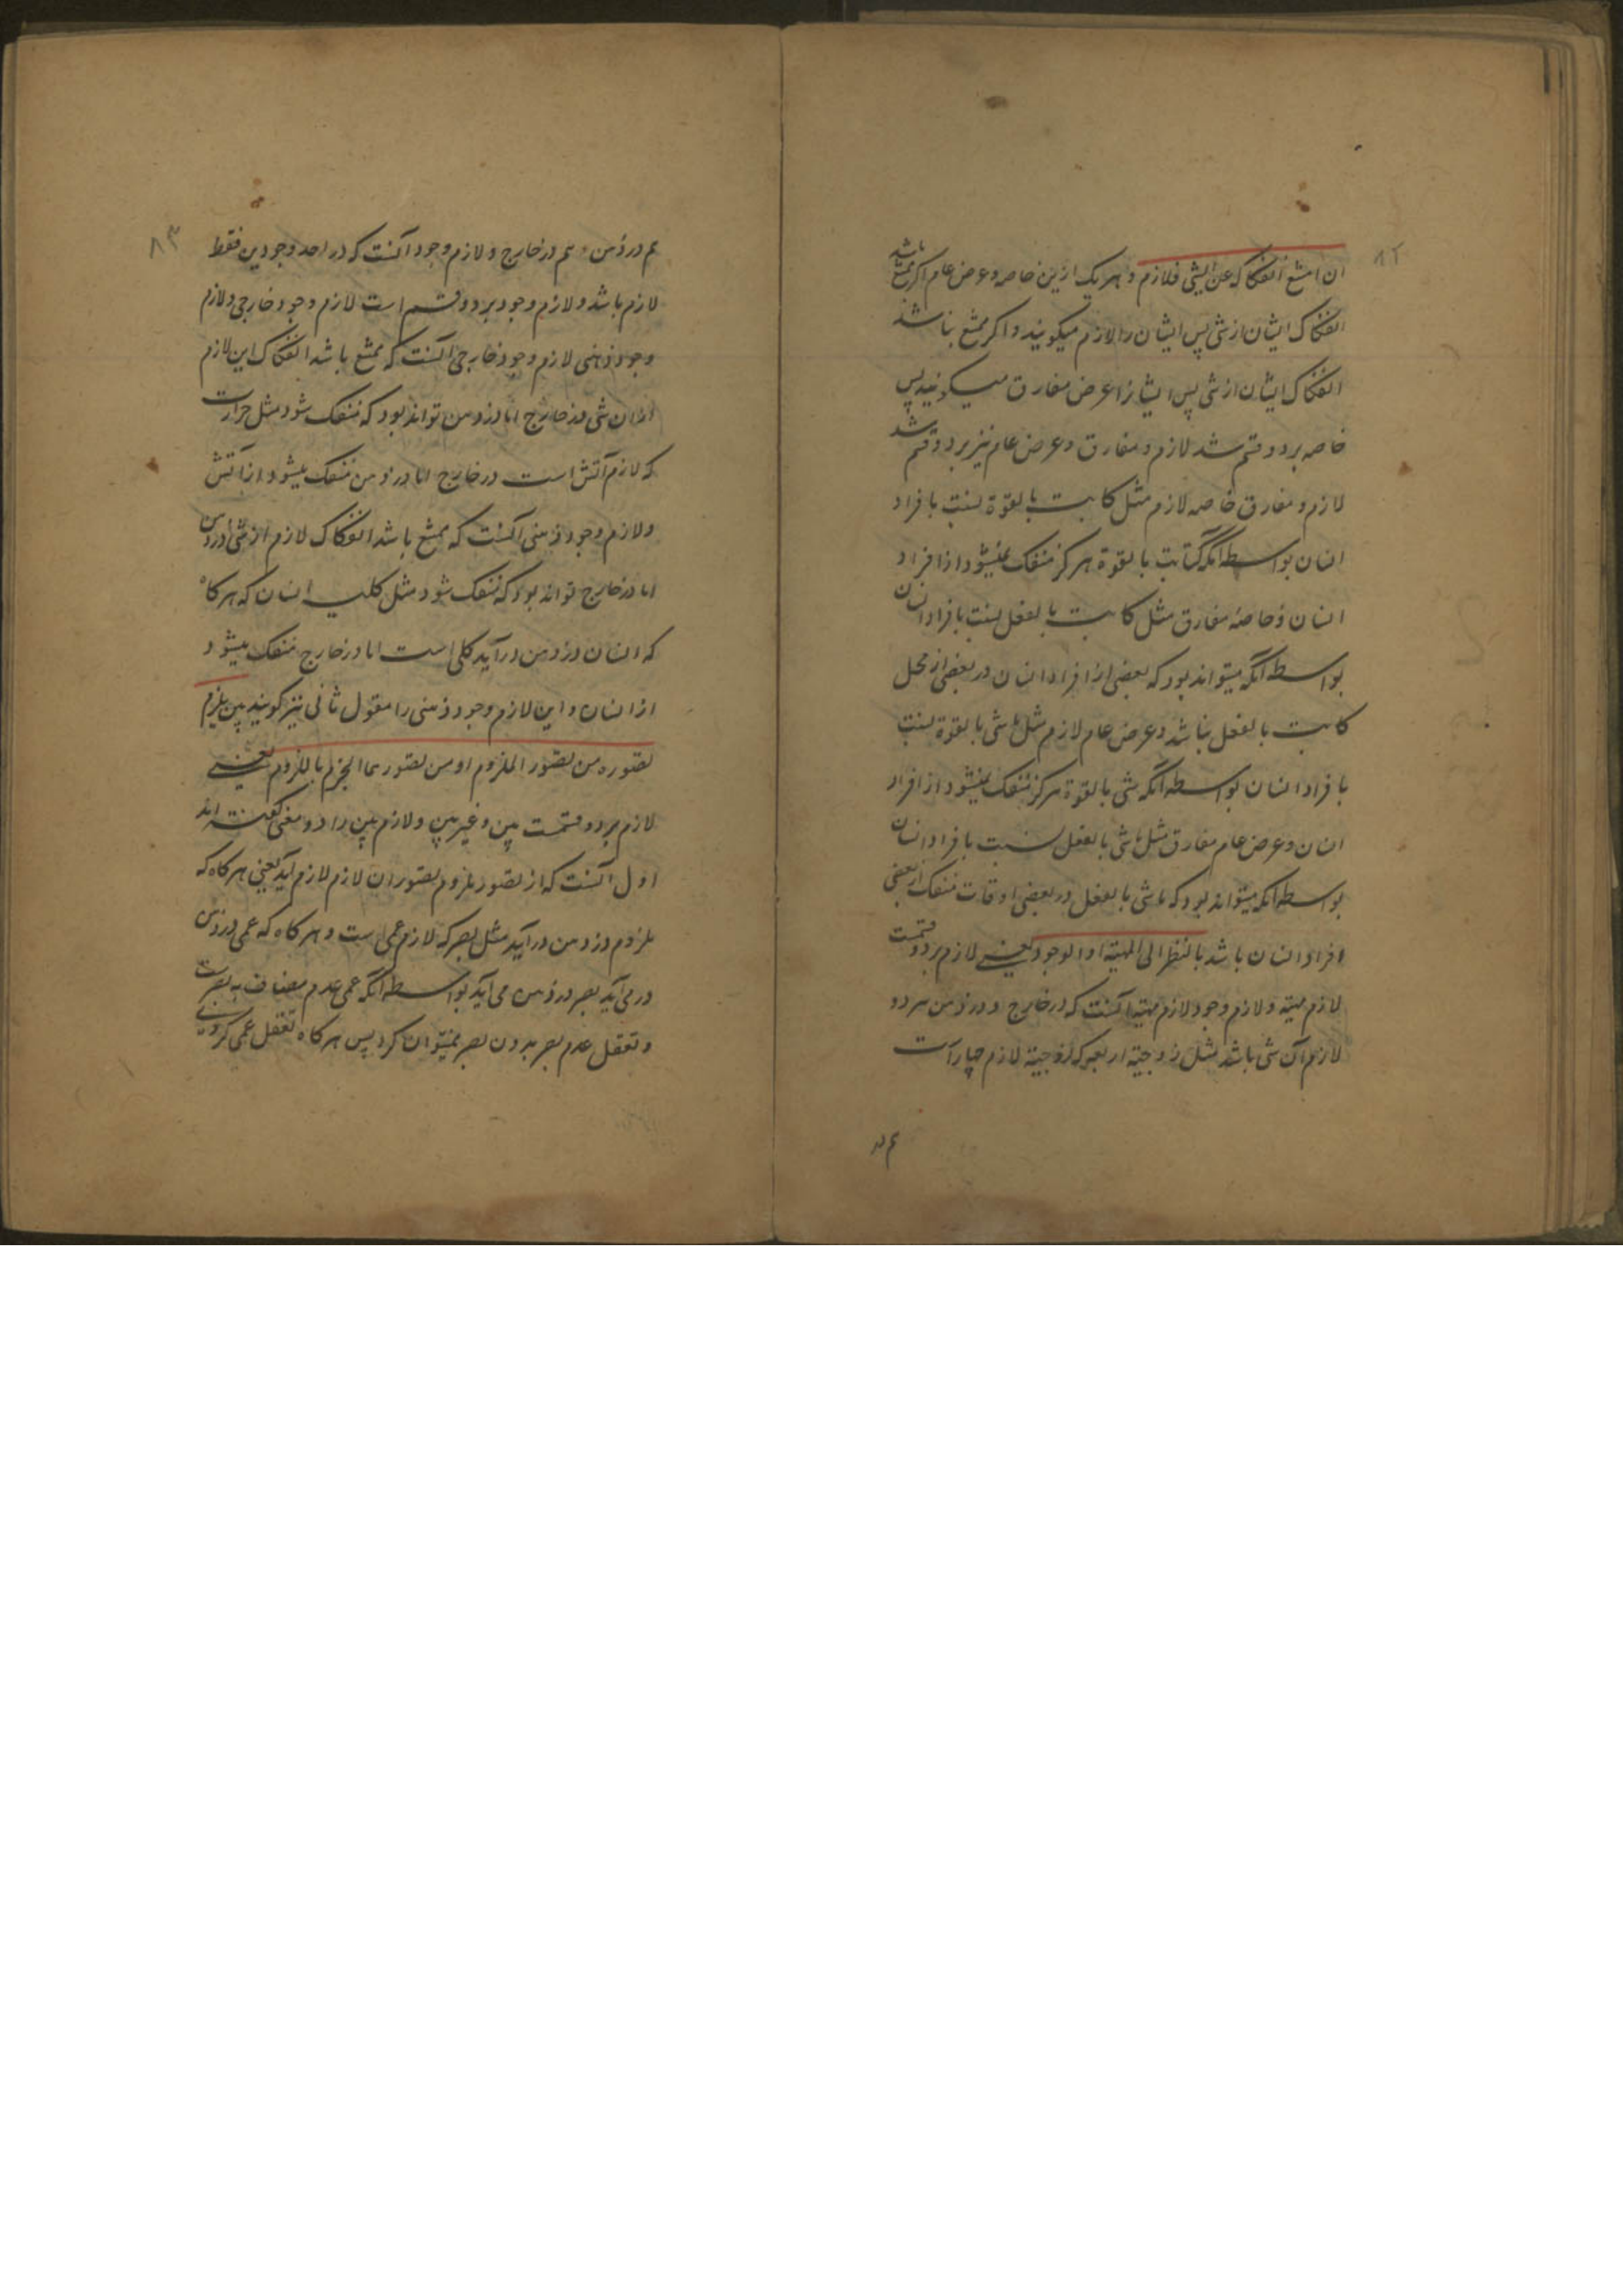 ۸۲
ان امتنع انفکاکه عن الشی فلازم و هر یک ازین خاصه و عرض عام اگر ممتنع باشد
انفکاک ایشان از شی پس ایشان را لازم میکویند و اکر ممتنع نباشد
انفکاک ایشان از شی پس ایشانرا عرض مفارق میکویند پس
خاصه بر دو قسم شد لازم و مفارق و عرض عام نیز بر دو قسم شد
لازم و مفارق خاصه لازم مثل کاتب بالقوة نسبت بافراد
انسان بواسطه آنکه کتابت بالقوة هرکز منفک نمیشود از افراد
انسان و خاصه مفارق مثل کاتب بالفعل نسبت بافراد انسان
بواسطه آنکه میتواند بود که بعضی از افراد انسان در بعضی از محل
کاتب بالفعل نباشد و عرض عام لازم مثل ماشی بالقوة نسبت
بافراد انسان بواسطه آنکه مشی بالقوة هرکز منفک نمیشود از افراد
انسان و عرض عام مفارق مثل ماشی بالفعل نسبت بافراد انسان
بواسطه آنکه میتواند بود که ماشی بالفعل در بعضی اوقات منفک از بعضی
افراد انسان باشد بالنظر الی المهیة او الوجود یعنی لازم بر دو قسمت
لازم مهیة و لازم وجود لازم مهیة آنست که در خارج و در ذهن هر دو
لازم آن شی باشد مثل زوجیة اربعه که زوجیة لازم چهار است
هم در
۸۳
هم در ذهن و هم در خارج و لازم وجود آنست که در احد وجودین فقط
لازم باشد و لازم وجود بر دو قسم است لازم وجود خارجی و لازم
وجود ذهنی لازم وجود خارجی آنست که ممتنع باشد انفکاک این لازم
ازان شی در خارج اما در ذهن تواند بود که منفک شود مثل حرارت
که لازم آتش است در خارج اما در ذهن منفک میشود از آتش
و لازم وجود ذهنی آنست که ممتنع باشد انفکاک لازم از شی در ذهن
اما در خارج تواند بود که منفک شود مثل کلیت انسان که هرکاه
که انسان در ذهن درآید کلی است اما در خارج منفک میشود
از انسان و این لازم وجود ذهنی را معقول ثانی نیز کویند بین یلزم
تصوره من تصور الملزوم او من تصورهما الجزم باللزوم یعنی
لازم بر دو قسمت بین و غیر بین و لازم بین را دو معنی کفته اند
اول آنست که از تصور ملزوم تصور ان لازم لازم آید یعنی هرکاه که
ملزوم در ذهن درآید مثل بصر که لازم عمی است و هرکاه که عمی در ذهن
در می آید بصر در ذهن می آید بواسطه آنکه عمی عدم مضاف به بصرست
و تعقل عدم بصر بدون بصر نمیتوان کرد پس هرکاه تعقل عمی کردی